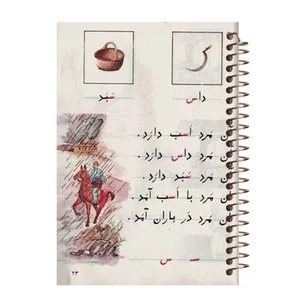 داس سَبَد
ن مَرد اَسب دارَد.
ن مَرد داس دارَد.
ن مَرد سَبَد دارَد.
ن مَرد با اَسب آمَد.
ن مَرد دَر باران آمَد.
سـ س
۲۳